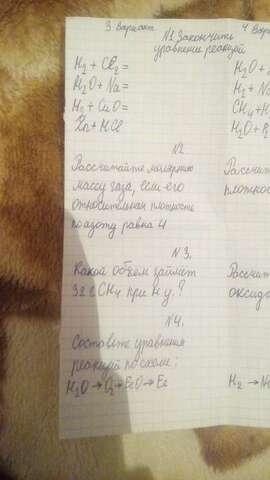 3 Вариант
№1 Закончить
уравнения реакций
H₂ + Cl₂ =
H₂O + Na =
H₂ + CuO =
Zn + HCl
№2
Рассчитайте молярную
массу газа, если его
относительная плотность
по азоту равна 4
№3.
Какой объем займет
32 г CH₄ при н.у.?
№4.
Составьте уравнения
реакций по схеме:
H₂O → O₂ →
4
H₂O +
H₂ + N
CH₄ +
H₂O +
Рассчит
плотнос
Рассчит
оксида
H₂ →